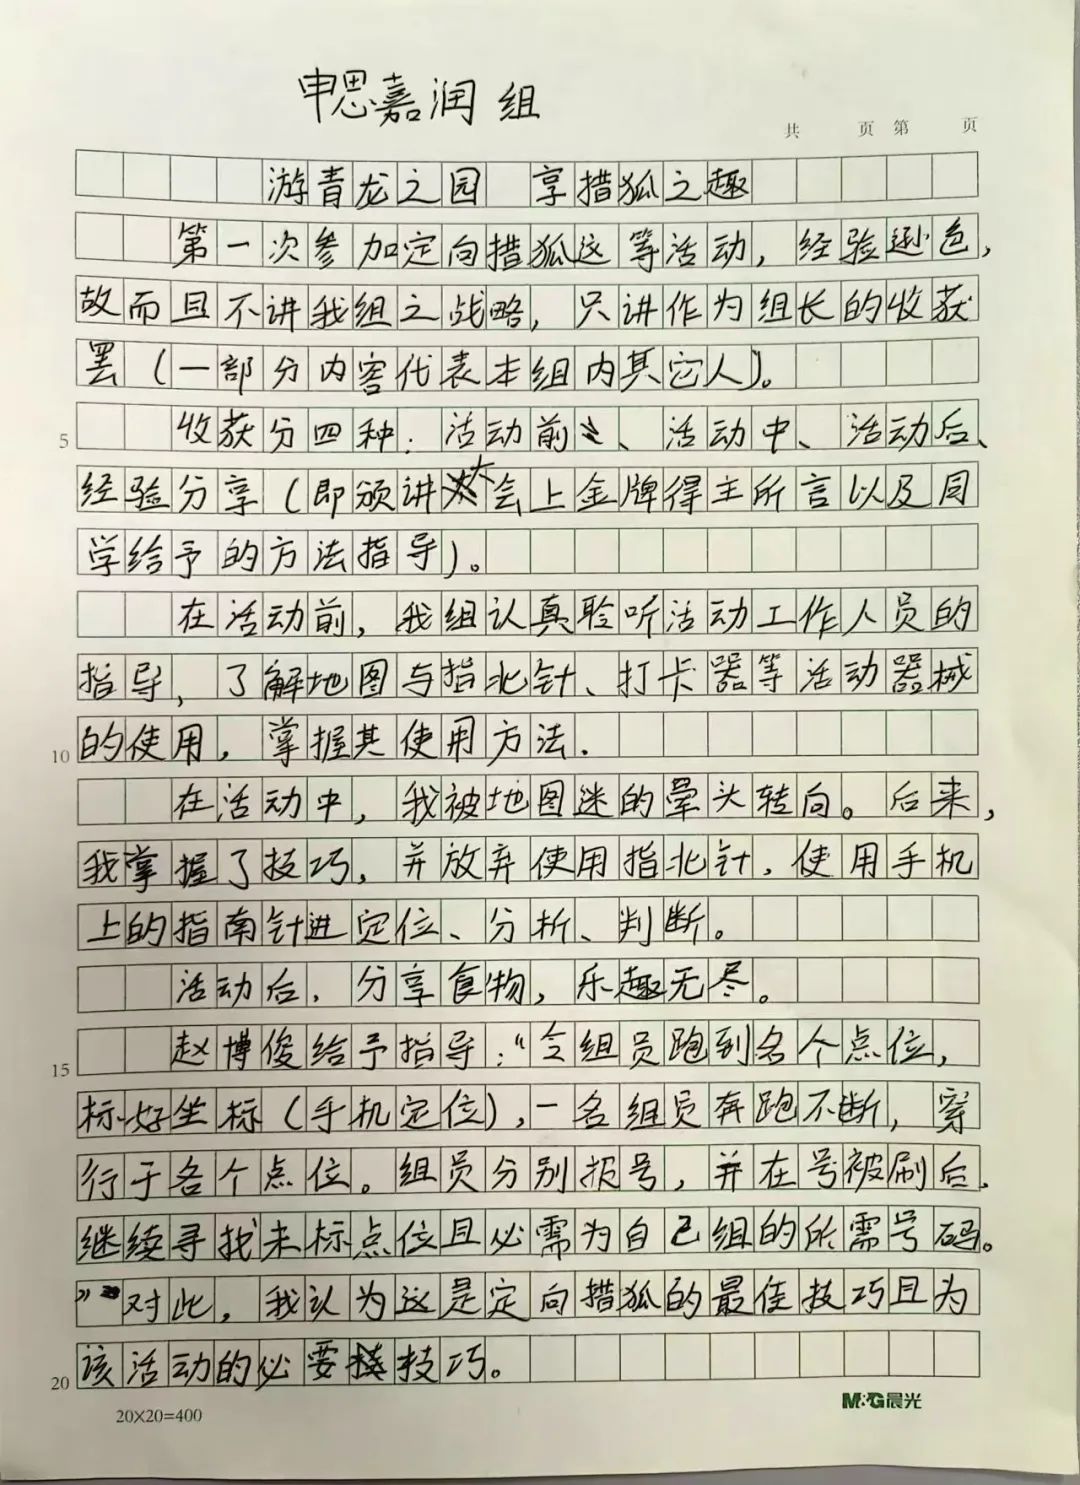 申思嘉润组
共 页 第 页
游青龙之园 享措狐之趣
第一次参加定向措狐这等活动，经验逊色，
故而且不讲我组之战略，只讲作为组长的收获
罢（一部分内容代表本组内其它人）。
5 收获分四种：活动前、活动中、活动后、
经验分享（即颁讲大会上金牌得主所言以及同
学给予的方法指导）。
在活动前，我组认真聆听活动工作人员的
指导，了解地图与指北针、打卡器等活动器械
10 的使用，掌握其使用方法.
在活动中，我被地图迷的晕头转向。后来，
我掌握了技巧，并放弃使用指北针，使用手机
上的指南针进定位、分析、判断。
活动后，分享食物，乐趣无尽。
15 赵博俊给予指导：“令组员跑到各个点位，
标好坐标（手机定位），一名组员奔跑不断，穿
行于各个点位。组员分别报号，并在号被刷后，
继续寻找未标点位且必需为自己组的所需号码。
”对此，我认为这是定向措狐的最佳技巧且为
20 该活动的必要技巧。
20×20=400
M&G晨光